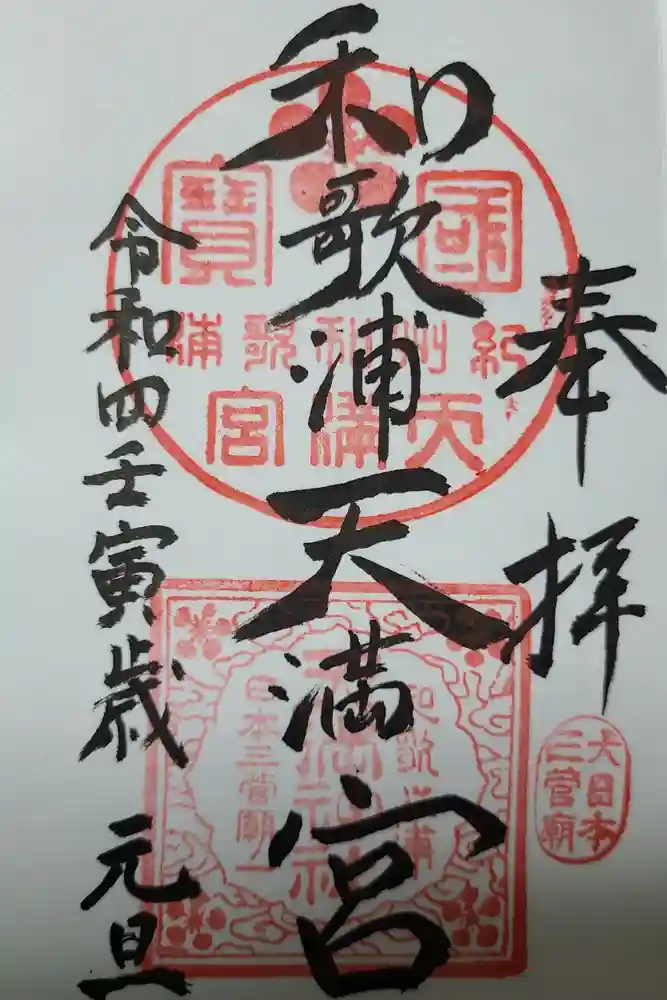 奉拝
和歌浦天満宮
令和四壬寅歳 元旦
國寶
紀州和歌浦
天満宮
大日本
三菅廟
和歌之浦
日本三菅廟一